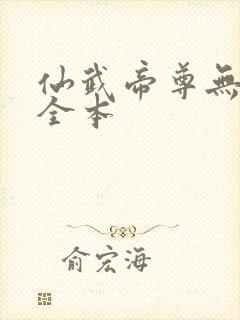 仙武帝尊無
全本
俞宏海